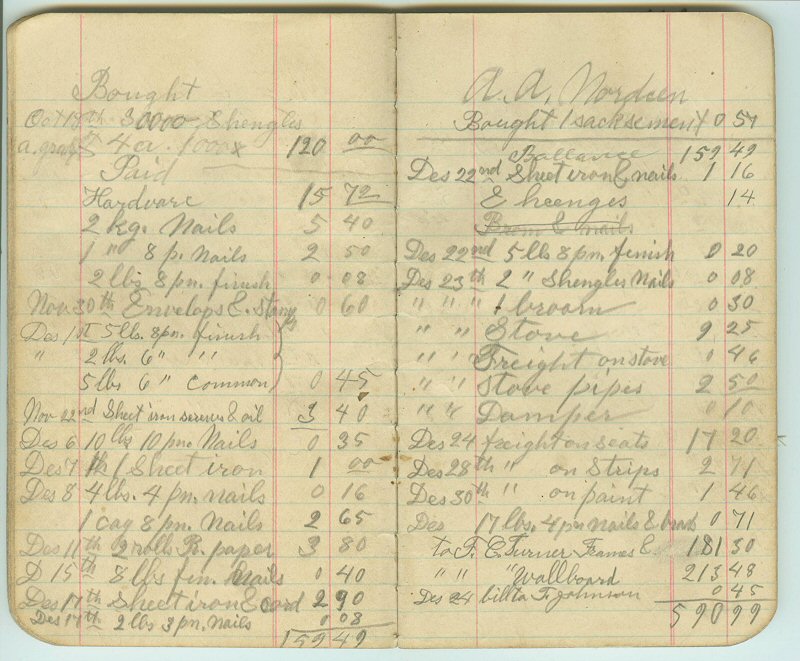 Bought
Oct 18th 30000 Shengles
a. gray 4 ca. 1000x 120 00
Paid
Hardware 15 72
2 kg. Nails 5 40
1 " 8 p. Nails 2 50
2 lbs 8 pn. finush 0 08
Nov 30th Envelops &. Stamps 0 60
Des 1st 5 lbs. 8 pn. finush
" 2 lbs. 6" " "
5 lbs 6" Common 0 45
Nov 22nd Sheet iron screws & oil 3 40
Des 6 10 lbs 10 pn. Nails 0 35
Des 7th 1 Sheet iron 1 00
Des 8 4 lbs. 4 pm. nails 0 16
1 cag 8 pm. Nails 2 65
Des 11th 2 rolls R. paper 3 80
D 15th 8 lbs fin. Nails 0 40
Des 17th Sheet iron & Cord 2 90
Des 17th 2 lbs 3 pn. nails 0 08
159 49
A. A. Nordeen
Bought 1 sack sement 0 57
Ballance 159 49
Des 22nd Sheet iron & nails 1 16
& heenges 14
Brom & nails
Des 22nd 5 lbs 8 pm. finish 0 20
Des 23th 2 " Shengles Nails 0 08
" " " 1 broom 0 30
" " Stove 9 25
" " " Freight on stove 0 46
" " Stove pipes 2 50
" " Damper 0 10
Des 24 freight on seats 17 20
Des 28th " on Strips 2 71
Des 30th " on paint 1 46
Des 17 lbs. 4 pn nails & brads 0 71
to F. C. Turner Frames & 181 30
" " "Wallboard 213 48
Des 24 bill to F. Johnson 0 45
590 99